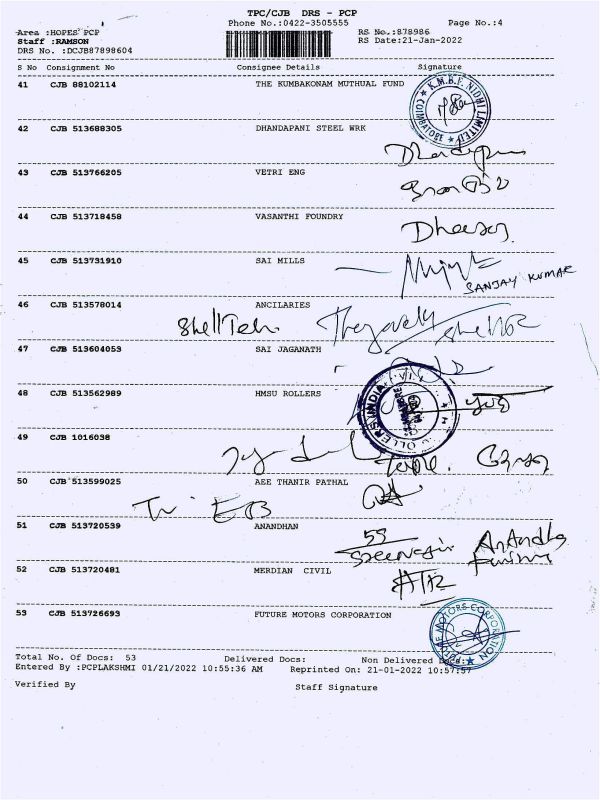 TPC/CJB DRS - PCP
Phone No.:0422-3505555 Page No.:4
Area :HOPES PCP RS No.:878986
Staff :RAMSON RS Date:21-Jan-2022
DRS No. :DCJB87898604
S No Consignment No Consignee Details Signature
41 CJB 88102114 THE KUMBAKONAM MUTHUAL FUND
K.M.B.F. NIDHI LIMITED
COIMBATORE
42 CJB 513688305 DHANDAPANI STEEL WRK
43 CJB 513766205 VETRI ENG
44 CJB 513718458 VASANTHI FOUNDRY
45 CJB 513731910 SAI MILLS
SANJAY KUMAR
46 CJB 513578014 ANCILARIES
47 CJB 513604053 SAI JAGANATH
48 CJB 513562989 HMSU ROLLERS
49 CJB 1016038
50 CJB 513599025 AEE THANIR PATHAL
51 CJB 513720539 ANANDHAN
52 CJB 513720481 MERDIAN CIVIL
53 CJB 513726693 FUTURE MOTORS CORPORATION
FUTURE MOTORS CORPORATION
Total No. Of Docs: 53 Delivered Docs: Non Delivered Docs:
Entered By :PCPLAKSHMI 01/21/2022 10:55:36 AM Reprinted On: 21-01-2022 10:57:57
Verified By Staff Signature